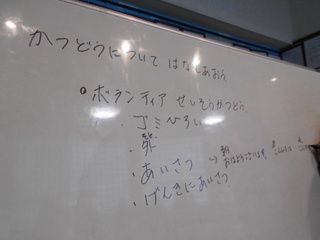 かつどうについて はなしあおう
ボランティア せいそうかつどう
・ゴミひろい
・あいさつ → おはようございます
・げんきにあいさつ